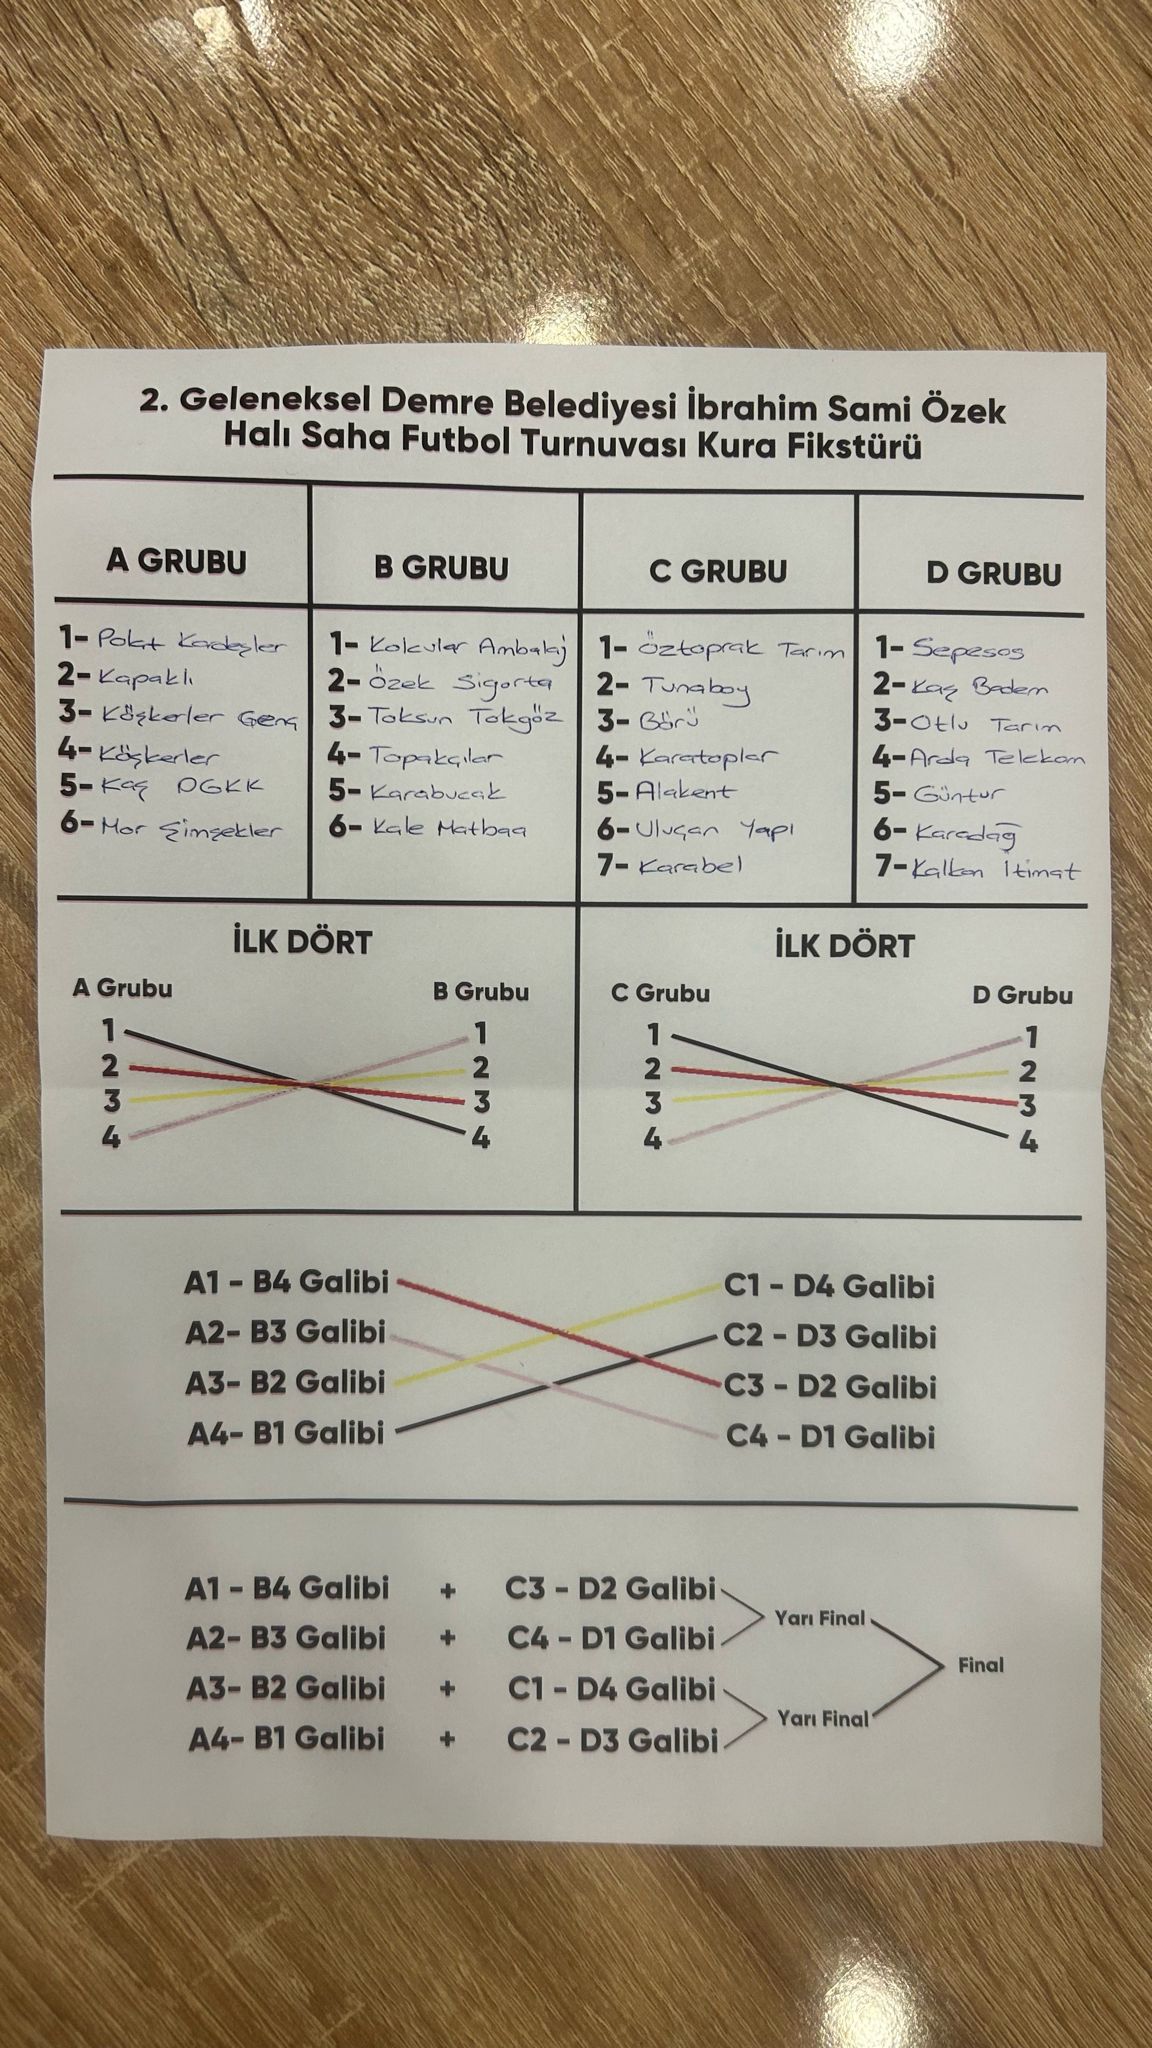 2. Geleneksel Demre Belediyesi İbrahim Sami Özek
Halı Saha Futbol Turnuvası Kura Fikstürü
A GRUBU
1- Polat Kardeşler
2- Kapaklı
3- Köşkerler Genç
4- Köşkerler
5- Kaş DGKK
6- Mor Şimşekler
B GRUBU
1- Kolcular Ambalaj
2- Özek Sigorta
3- Toksun Tokgöz
4- Topakçılar
5- Karabucak
6- Kale Matbaa
C GRUBU
1- Öztoprak Tarım
2- Tunaboy
3- Börü
4- Karatoplar
5- Alakent
6- Uluçan Yapı
7- Karabel
D GRUBU
1- Sepesos
2- Kaş Badem
3- Otlu Tarım
4- Arda Telekom
5- Güntur
6- Karadağ
7- Kalkan İtimat
İLK DÖRT
A Grubu B Grubu
1 1
2 2
3 3
4 4
İLK DÖRT
C Grubu D Grubu
1 1
2 2
3 3
4 4
A1 - B4 Galibi C1 - D4 Galibi
A2- B3 Galibi C2 - D3 Galibi
A3- B2 Galibi C3 - D2 Galibi
A4- B1 Galibi C4 - D1 Galibi
A1 - B4 Galibi + C3 - D2 Galibi
Yarı Final
A2- B3 Galibi + C4 - D1 Galibi
Final
A3- B2 Galibi + C1 - D4 Galibi
Yarı Final
A4- B1 Galibi + C2 - D3 Galibi